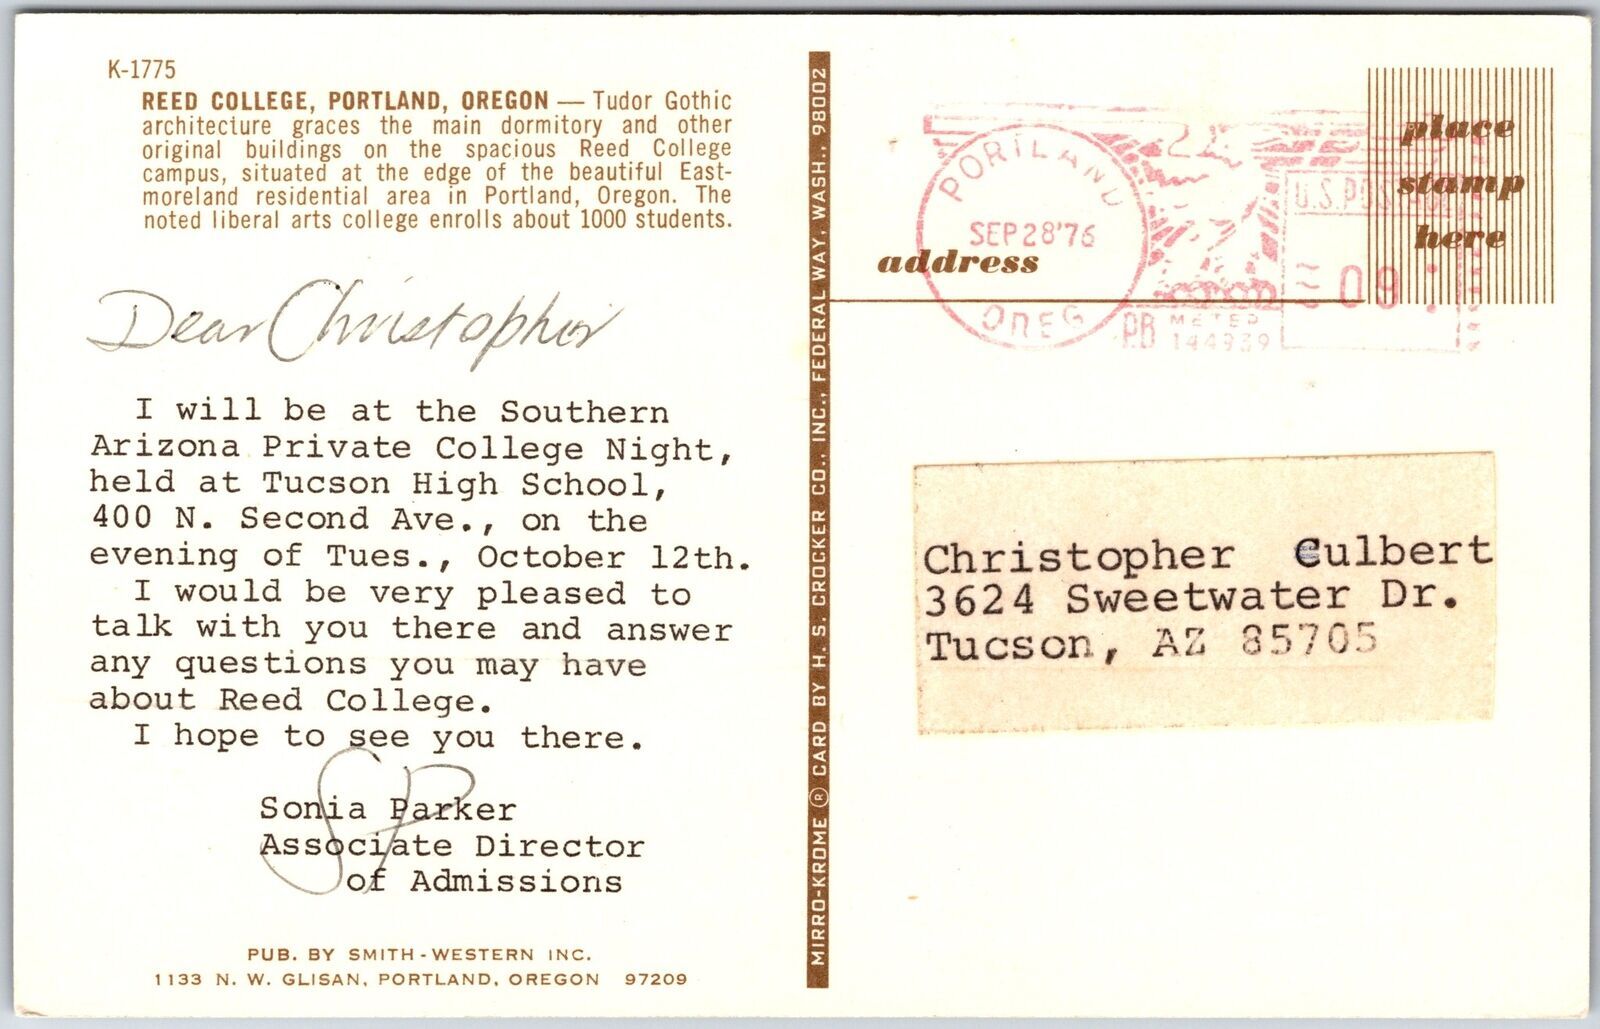 K-1775
REED COLLEGE, PORTLAND, OREGON — Tudor Gothic
architecture graces the main dormitory and other
original buildings on the spacious Reed College
campus, situated at the edge of the beautiful East-
moreland residential area in Portland, Oregon. The
noted liberal arts college enrolls about 1000 students.
Dear Christopher
I will be at the Southern
Arizona Private College Night,
held at Tucson High School,
400 N. Second Ave., on the
evening of Tues., October 12th.
I would be very pleased to
talk with you there and answer
any questions you may have
about Reed College.
I hope to see you there.
SP
Sonia Parker
Associate Director
of Admissions
PUB. BY SMITH-WESTERN INC.
1133 N. W. GLISAN, PORTLAND, OREGON 97209
MIRRO-KROME ® CARD BY H. S. CROCKER CO., INC., FEDERAL WAY, WASH., 98002
address
place
stamp
here
PORTLAND
SEP 28 '76
OREG
P.B. METER
144939
U.S. POSTAGE
09
Christopher Culbert
3624 Sweetwater Dr.
Tucson, AZ 85705